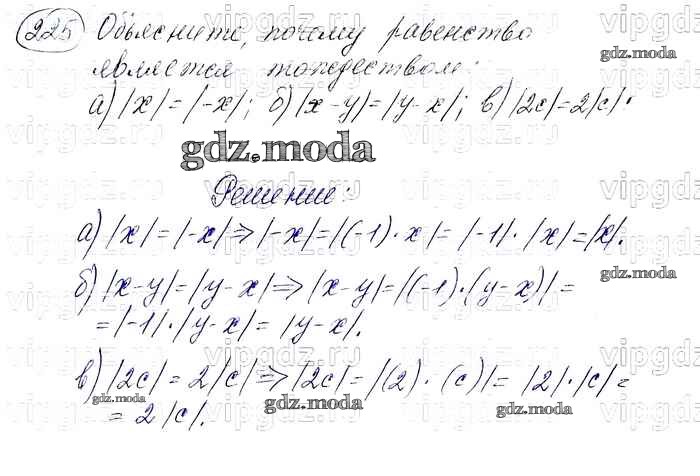 225 Объясните, почему равенство
является тождеством:
а) |x| = |-x|; б) |x-y| = |y-x|; в) |2c| = 2|c|.
gdz.moda
Решение:
а) |x| = |-x| ⇒ |-x| = |(-1)·x| = |-1|·|x| = |x|.
б) |x-y| = |y-x| ⇒ |x-y| = |(-1)·(y-x)| =
= |-1|·|y-x| = |y-x|.
в) |2c| = 2|c| ⇒ |2c| = |(2)·(c)| = |2|·|c| =
= 2|c|.
gdz.moda
gdz.moda
gdz.moda
gdz.moda
gdz.moda
gdz.moda
vipgdz